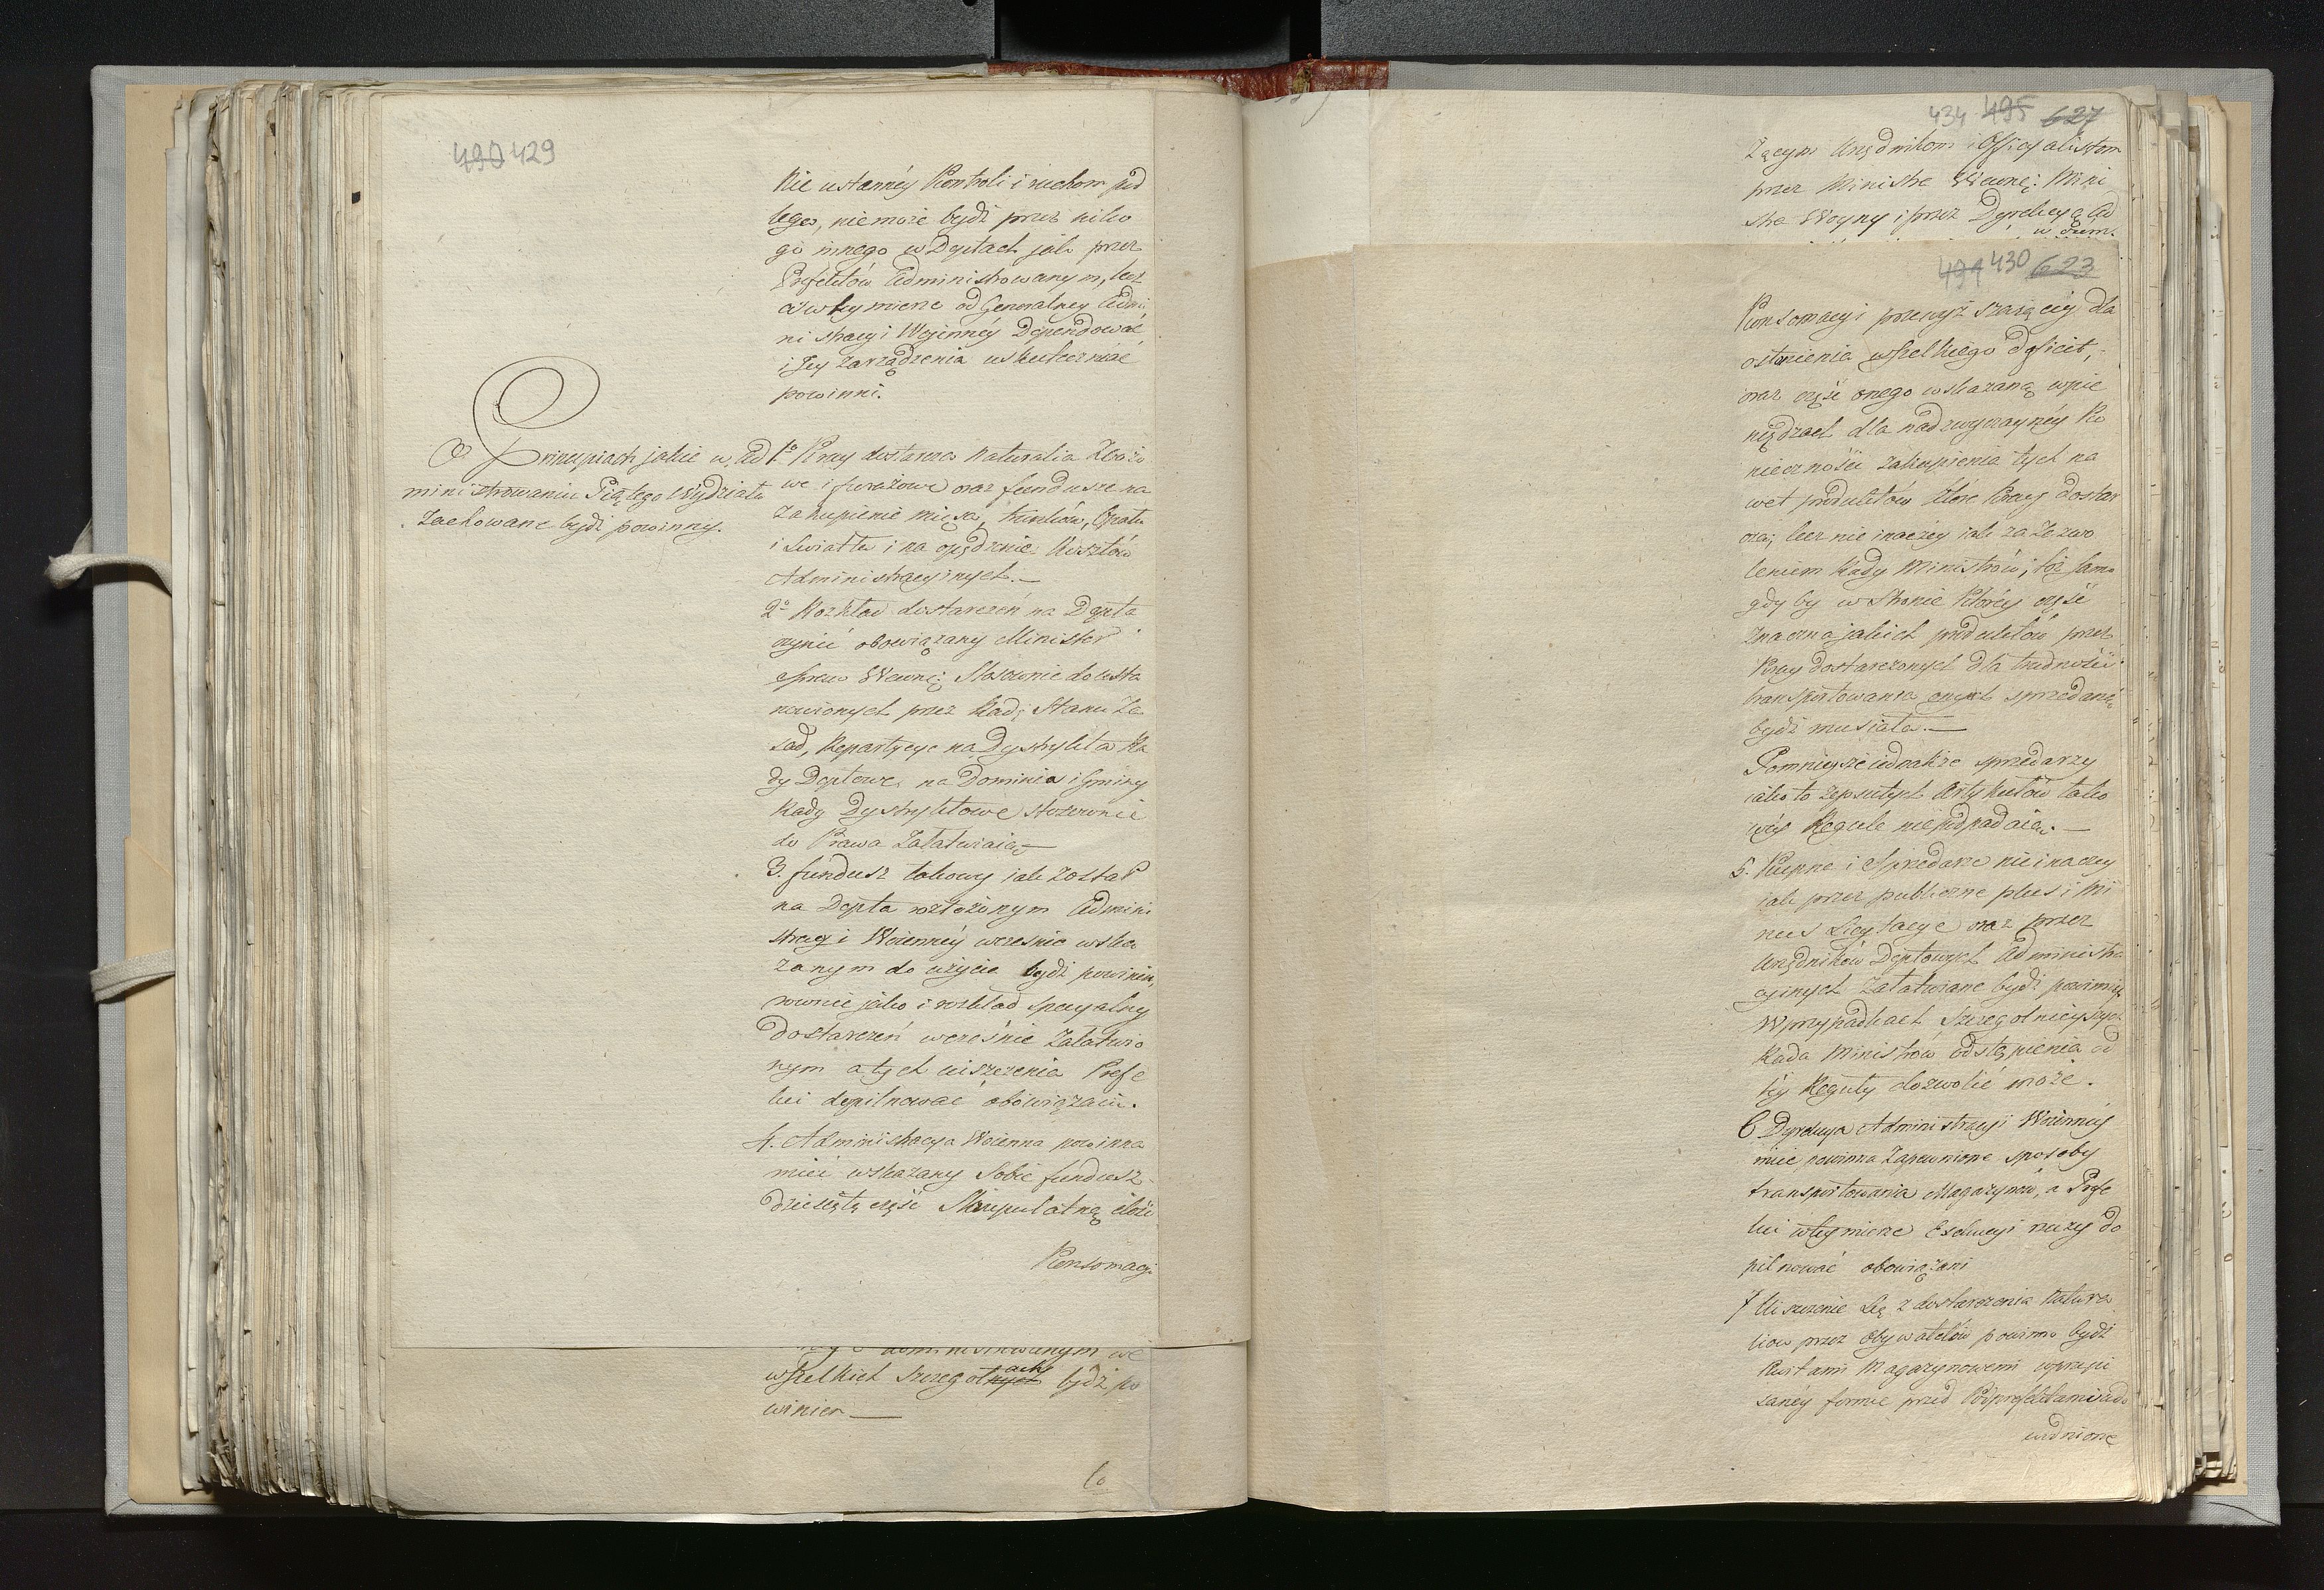 490 429
Nie ustanney Kontroli i ruchom pod
lega, nie może bydź przez niko
go innego w Dep̃tach jak przez
Prefektów Administrowanym, lecz
ci w tey mierze od Generalney Admi
nistracyi Woienney Dependować
i Jey zarządzenia uskuteczniać
powinni.
O Principiach jakie w Ad
ministrowaniu Piątego Wydziału
Zachowane bydź powinny.
1o Kray dostarcza Naturalia Zbożo
we i furażowe oraz fundusze na
zakupienie mięsa, trunków, Opału
i Swiatła i na opędzenie Kosztów
Administracyinych.—
2o Rozkład dostarczeń na Dep̃ta
czynić obowiązany Minister
Spraw Wewnę: Stosownie do usta
nowionych przez Radę Stanu Za
sad, Repartycye na Dystrykta Ra
dy Dep̃towe, na Dominia i Gminy
Rady Dystryktowe stosownie
do Prawa Załatwiaią—
3. fundusz takowy jak został
na Dep̃ta rozłożonym Admini
stracyi Woienney wcześnie wska
zanym do użycia bydź powinien,
rownie jako i rozkład specyalny
dostarczeń wcześnie Załatwio
nym a tych uiszczenia Prefe
kci dopilnować obowiązani.
4. Administracya Woienna powinna
mieć wskazany Sobie fundusz
dziesiątą część Skrupulatną ilość
Konsomacyi
administrowanym we
wszelkich szczegolnych ach bydź po
winien—
to
434 495 627
Zącym Urzędnikom i Officyalistom
przez Ministra Wewnę: Mini
stra Woyny i przez Dyrekcyą Ad
491 430 623
Konsomacyi przewyższaiącey dla
ostnienia wszelkiego deficit,
oraz część onego wskazaną w pie
niądzach dla nadzwyczayney Ko
nieczności zakupienia tych na
wet produktów które Kray dostar
cza; lecz nie inaczey jak za Zezwo
leniem Rady Ministrów; toż samo
gdy by w stronie którey część
znaczna jakich produktów przez
Kray dostarczonych dla trudności
transportowania onych sprzedaną
bydź musiała.—
Pomnieysze iednakże sprzedarzy
iako to zepsutych Artykułów tako
wey Regule nie podpadaią.—
5. Kupna i Sprzedarze nie inaczey
jak przez publiczne plus i Mi
nus Licytacye oraz przez
Urzędników Dep̃towych Administra
cyinych Załatwiane bydź powinny
W przypadkach Szczegolnieyszych
Rada Ministrów odstąpienia od
tey Reguły dozwolić może.
6 Dyrekcya Administracyi Woienney
mieć powinna Zapewnione sposoby
transportowania Magazynów, a Prefe
kci w tey mierze Exekucyi rzeczy do
pilnować obowiązani
7 Uiszczenie Się z dostarczenia Natura
liow przez Obywatelów powinno bydź
Kwitami Magazynowemi w przepi
saney formie przed Podprefektami udo
wodnione